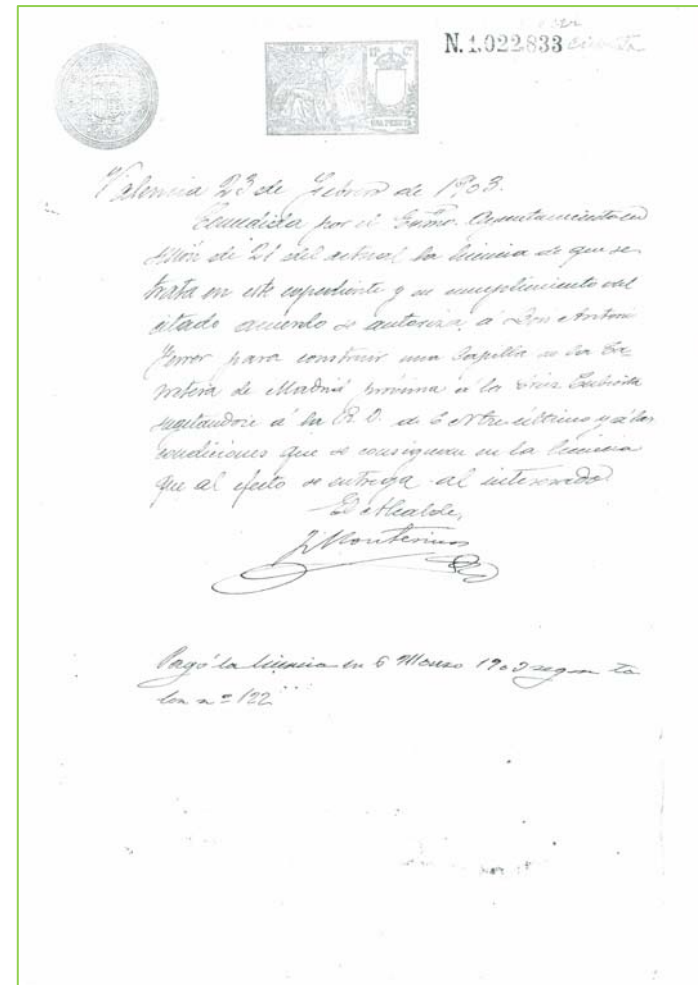 N. 1.022.833
Valencia 23 de Febrero de 1903.
Concedida por el Excmo. Ayuntamiento en
sesión de 21 del actual la licencia de que se
trata en este expediente y en cumplimiento del
citado acuerdo se autoriza á Don Antonio
Ferrer para construir una Capilla en la Ca-
rretera de Madrid próxima á la Cruz Cubierta
sugetandose á la R. O. de 6 último y á las
condiciones que se consignan en la licencia
que al efecto se entrega al interesado
El Alcalde,
J. Montesinos
Pagó la licencia en 6 Marzo 1903 segun ta
lon nº 122